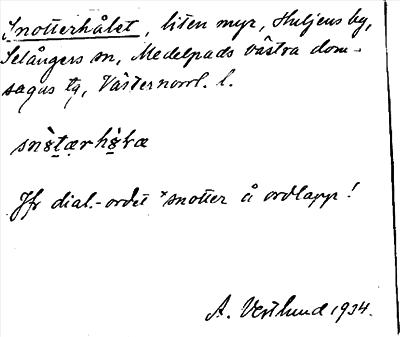 Snotterhålet, liten myr, Huljens by,
Selångers sn, Medelpads västra dom-
sagas tg, Västernorrl. l.
Jfr dial.-ordet *snotter å ordlapp!
A. Vestlund 1934.